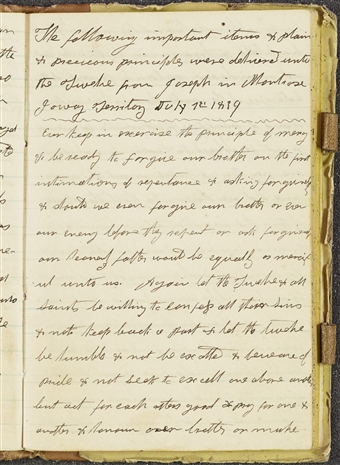 The following important items & plain
& precious principles were delivered unto
the Twelve from Joseph in Montrose
Joway Territory July 2nd 1839
Ever keep in exercise the principle of mercy
& be ready to forgive our brother on the first
intimations of repentance & asking forgivness
& should we even forgive our brother or even
our enemy before they repent or ask forgivness
our heavenly father would be equally as mercif
ul unto us. Again let the Twelve & all
saints be willing to confess all their sins
& not keep back a part & let the twelve
be humble & not be exalted & beware of
pride & not seek to excell one above another
but act for each others good & pray for one &
another & honour our brother or make